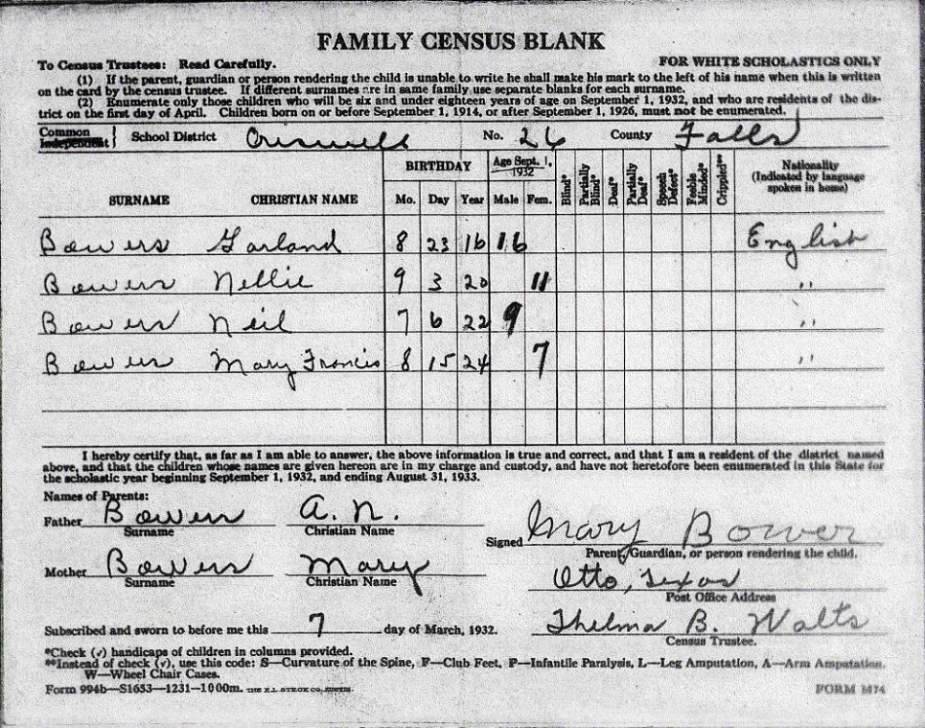 FAMILY CENSUS BLANK
To Census Trustees: Read Carefully. FOR WHITE SCHOLASTICS ONLY
(1) If the parent, guardian or person rendering the child is unable to write he shall make his mark to the left of his name when this is written
on the card by the census trustee. If different surnames are in same family use separate blanks for each surname.
(2) Enumerate only those children who will be six and under eighteen years of age on September 1, 1932, and who are residents of the dis-
trict on the first day of April. Children born on or before September 1, 1914, or after September 1, 1926, must not be enumerated.
Common
Independent } School District Criswell No. 26 County Falls
SURNAME CHRISTIAN NAME BIRTHDAY Mo. Day Year Age Sept. 1, 1932 Male Fem. Blind* Partially Blind* Deaf* Partially Deaf* Speech Defect* Feeble Minded* Crippled** Nationality (Indicated by language spoken in home)
Bowers Garland 8 23 16 16 English
Bowers Nellie 9 3 20 11 "
Bowers Neil 7 6 22 9 "
Bowers Mary Francis 8 15 24 7 "
I hereby certify that, as far as I am able to answer, the above information is true and correct, and that I am a resident of the district named
above, and that the children whose names are given hereon are in my charge and custody, and have not heretofore been enumerated in this State for
the scholastic year beginning September 1, 1932, and ending August 31, 1933.
Names of Parents:
Father Bowers A. N.
Surname Christian Name
Signed Mary Bower
Parent, Guardian, or person rendering the child.
Mother Bowers Mary
Surname Christian Name
Otto, Texas
Post Office Address
Subscribed and sworn to before me this 7 day of March, 1932.
Thelma B. Walts
Census Trustee.
*Check (✓) handicaps of children in columns provided.
**Instead of check (✓), use this code: S—Curvature of the Spine, F—Club Feet, P—Infantile Paralysis, L—Leg Amputation, A—Arm Amputation,
W—Wheel Chair Cases.
Form 994b—S1653—1231—1000m. FORM M74